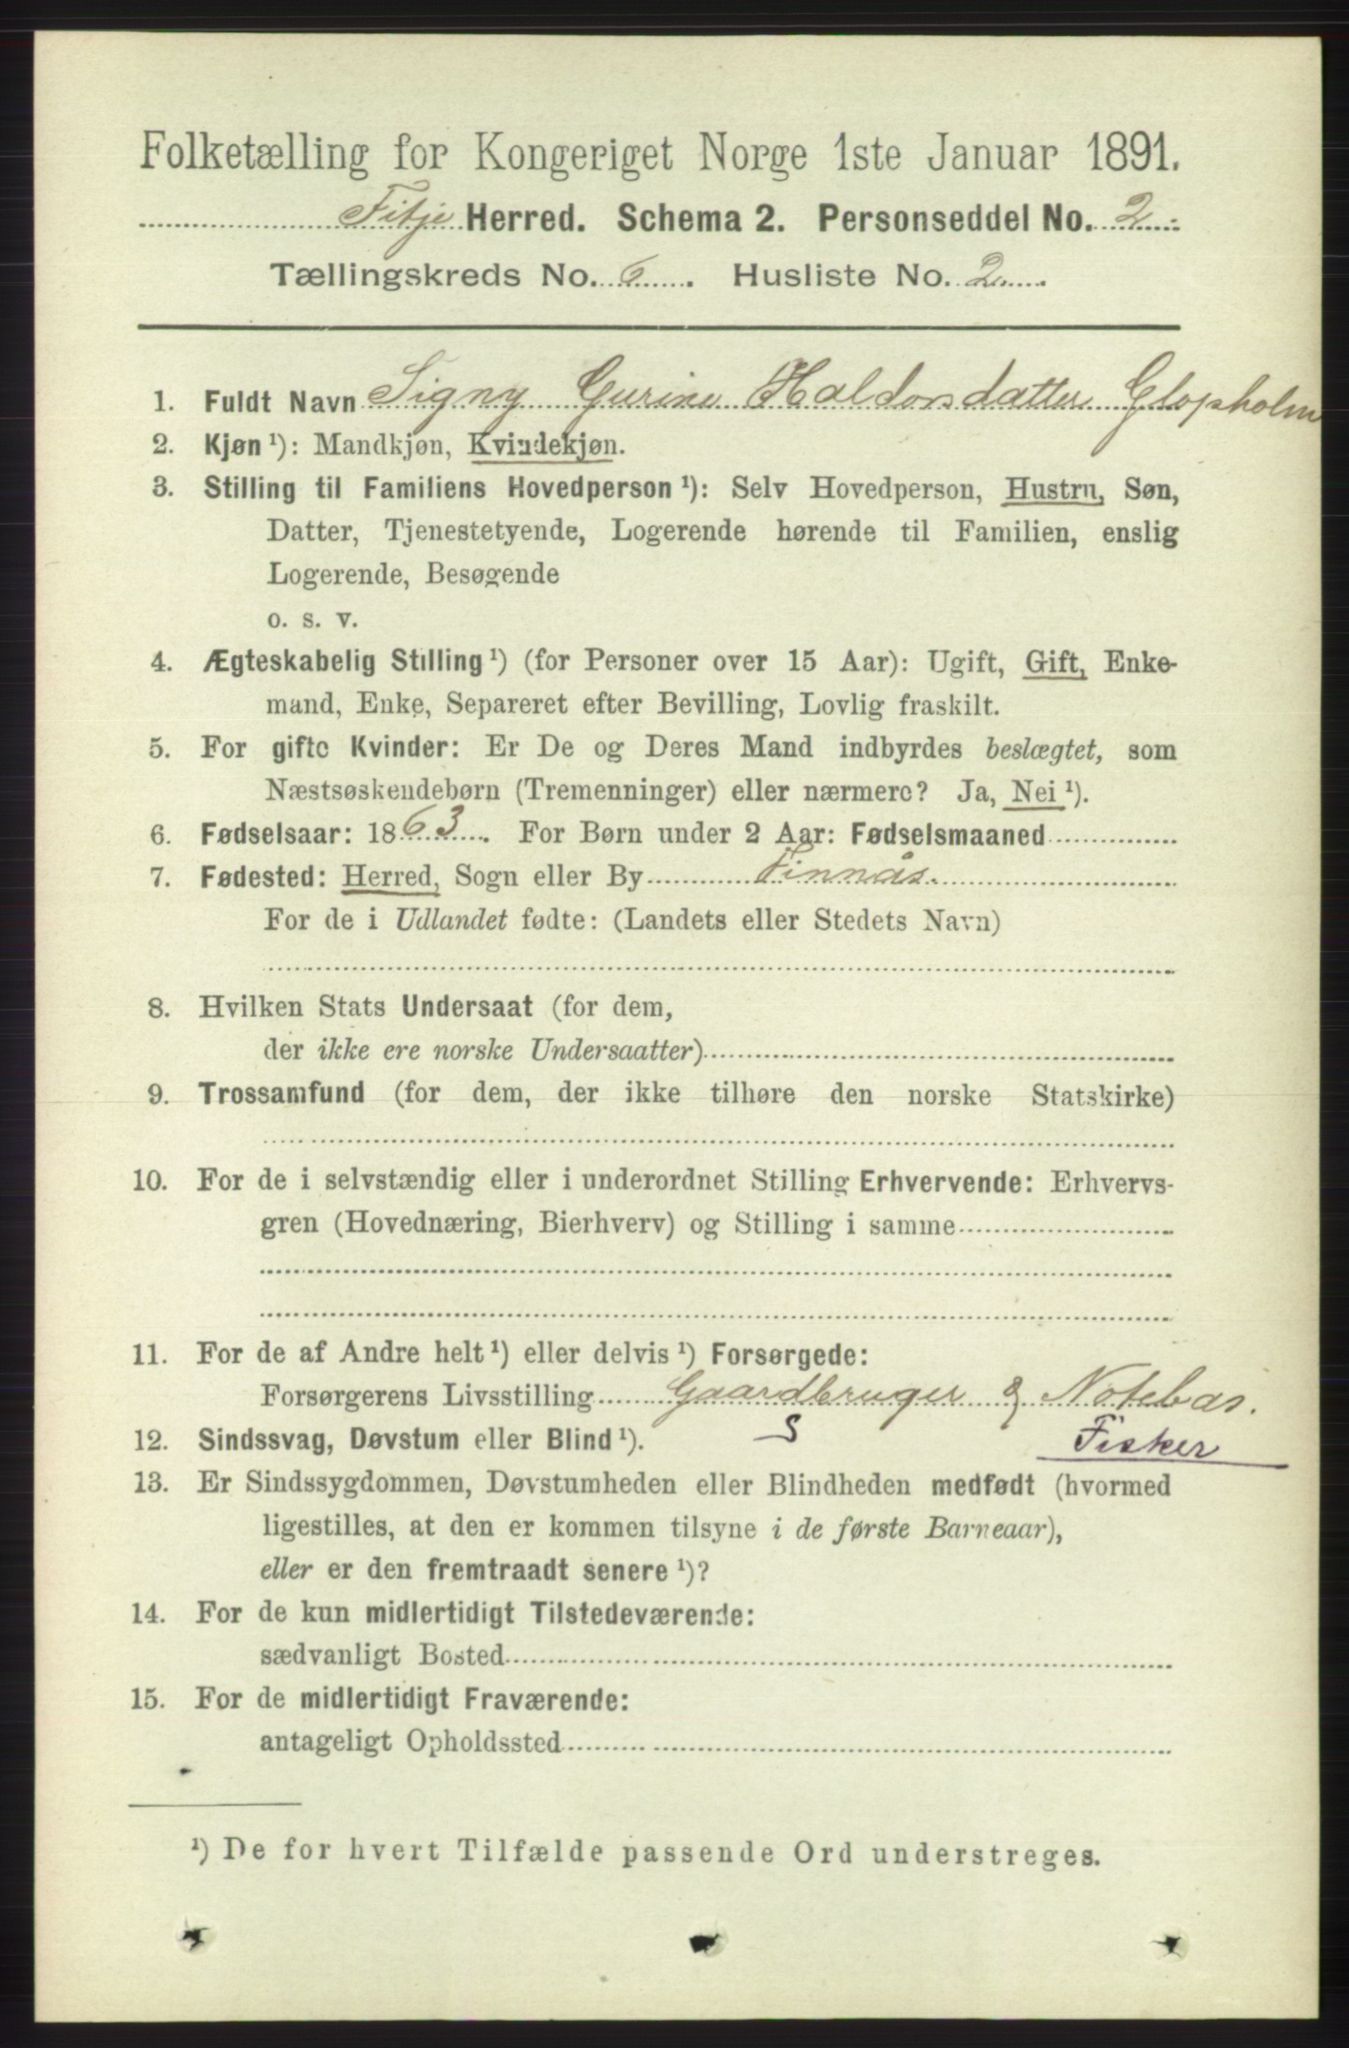 Folketælling for Kongeriget Norge 1ste Januar 1891.
Fitje Herred. Schema 2. Personseddel No. 2
Tællingskreds No. 6. Husliste No. 2.
1. Fuldt Navn Signy Gurine Haldorsdatter Glopholm
2. Kjøn ¹): Mandkjøn, Kvindekjøn.
3. Stilling til Familiens Hovedperson ¹): Selv Hovedperson, Hustru, Søn,
Datter, Tjenestetyende, Logerende hørende til Familien, enslig
Logerende, Besøgende
o. s. v.
4. Ægteskabelig Stilling ¹) (for Personer over 15 Aar): Ugift, Gift, Enke-
mand, Enke, Separeret efter Bevilling, Lovlig fraskilt.
5. For gifte Kvinder: Er De og Deres Mand indbyrdes beslægtet, som
Næstsøskendebørn (Tremenninger) eller nærmere? Ja, Nei ¹).
6. Fødselsaar: 1863. For Børn under 2 Aar: Fødselsmaaned
7. Fødested: Herred, Sogn eller By Finnås.
For de i Udlandet fødte: (Landets eller Stedets Navn)
8. Hvilken Stats Undersaat (for dem,
der ikke ere norske Undersaatter)
9. Trossamfund (for dem, der ikke tilhøre den norske Statskirke)
10. For de i selvstændig eller i underordnet Stilling Erhvervende: Erhvervs-
gren (Hovednæring, Bierhverv) og Stilling i samme
11. For de af Andre helt ¹) eller delvis ¹) Forsørgede:
Forsørgerens Livsstilling Gaardbruger & Notebas.
12. Sindssvag, Døvstum eller Blind ¹). S Fisker
13. Er Sindssygdommen, Døvstumheden eller Blindheden medfødt (hvormed
ligestilles, at den er kommen tilsyne i de første Barneaar),
eller er den fremtraadt senere ¹)?
14. For de kun midlertidigt Tilstedeværende:
sædvanligt Bosted
15. For de midlertidigt Fraværende:
antageligt Opholdssted
¹) De for hvert Tilfælde passende Ord understreges.